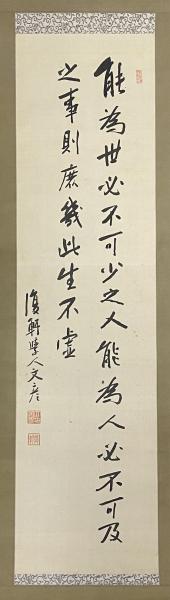 能為世必不可少之人能為人必不可及
之事則庶幾此生不虚
復軒学人文彦